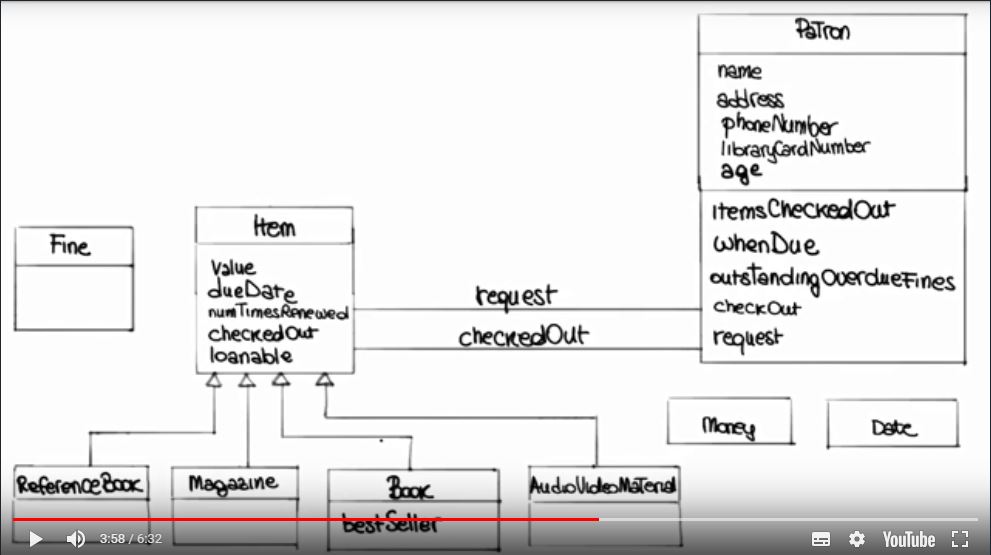 Patron
name
address
phoneNumber
libraryCardNumber
age
itemsCheckedOut
whenDue
outstandingOverdueFines
checkOut
request
Fine
Item
value
dueDate
numTimesRenewed
checkedOut
loanable
request
checkedOut
Money
Date
ReferenceBook
Magazine
Book
bestSeller
AudioVideoMaterial
3:58 / 6:32
YouTube